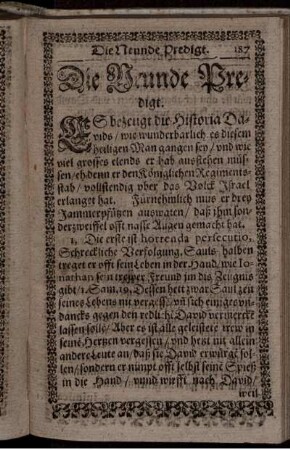 Die Neunde Predigt. 187
Die Neunde Pre-
digt.
ES bezeugt die Historia Da-
vids / wie wunderbarlich es diesem
heiligen Man gangen sey / vnd wie
viel grosses elends er hab ausstehen müs-
sen / eh denn er den Königlichen Regiments-
stab / vollstendig vber das Volck Israel
erlanget hat. Fürnehmlich mus er drey
Jammerpfützen auswaten / daß ihm son-
der zweiffel offt nasse Augen gemacht hat.
1. Die erste ist horrenda persecutio,
Schreckliche Verfolgung, Sauls halben
treget er offt sein Leben in der Hand, wie Jo-
nathan sein Freund im das Zeugnis
gibt / 1. Sam. 19. Dessen hett zwar Saul zeit
seines Lebens nit vergessen, vñ sich einiges vn-
dancks gegen den redlichẽ David vermercke
lassen solle / Aber es ist alle geleistete trew in
seinẽ Hertzen vergessen / vnd hetzt nit allein
andere Leute an / daß sie David erwürgẽ sol-
len / sondern er nimpt offt selbst seinẽ Spieß
in die Hand / vnnd wirfft nach David /
weil